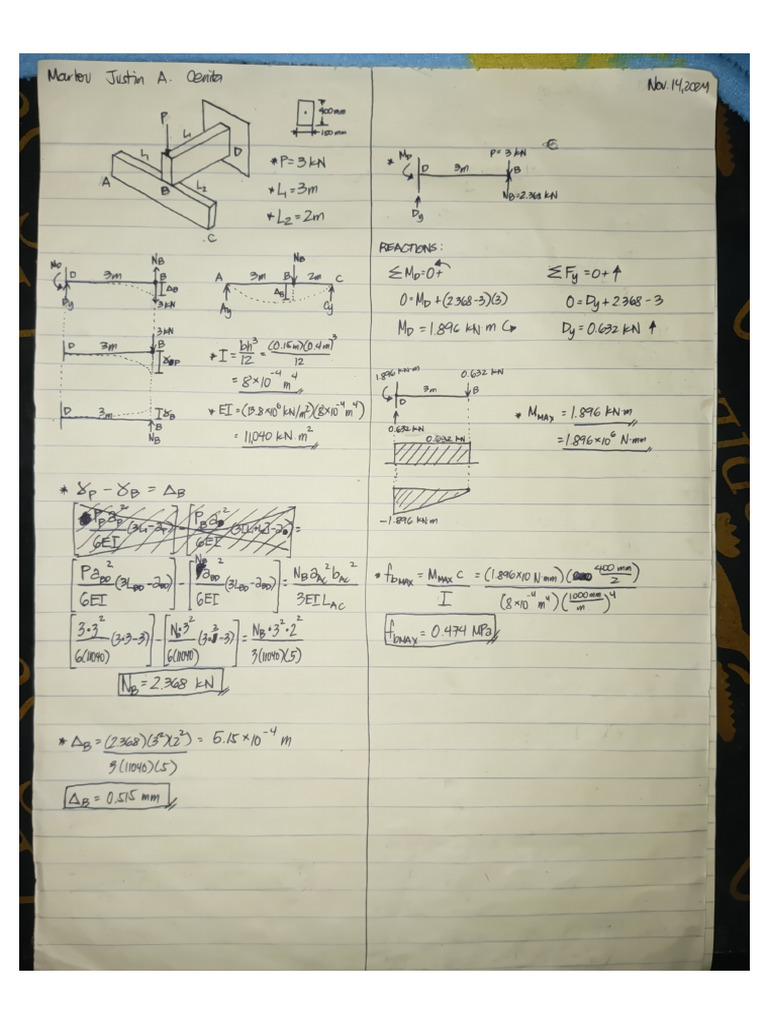 Nov. 14, 2024
P
L₁
L₁
A
B
D
L₂
C
400 mm
150 mm
* P = 3 kN
* L₁ = 3m
* L₂ = 2m
M_D
D
3m
N_B
B
Δ_B
Dy
3 kN
A
3m
N_B
B
2m
C
Δ_B
Ay
Cy
3 kN
D
3m
B
γ_P
D
3m
γ_B
B
N_B
* I = bh³/12 = (0.15m)(0.4m)³/12
= 8×10⁻⁴ m⁴
* EI = (13.8×10⁶ kN/m²)(8×10⁻⁴ m⁴)
= 11,040 kN·m²
* γ_P − γ_B = Δ_B
[Pa_BD²/6EI (3L_BD − a_BD)] − [N_B a_BD²/6EI (3L_BD − a_BD)] = N_B a_AC² b_AC²/3EIL_AC
[3·3²/6(11040) (3·3−3)] − [N_B·3²/6(11040) (3·3−3)] = N_B·3²·2²/3(11040)(5)
N_B = 2.368 kN
* Δ_B = (2.368)(3²)(2²)/3(11040)(5) = 5.15×10⁻⁴ m
Δ_B = 0.515 mm
* M_D
D
3m
P = 3 kN
B
Dy
N_B = 2.368 kN
REACTIONS:
ΣM_D = 0 +
0 = M_D + (2.368−3)(3)
M_D = 1.896 kN·m
ΣFy = 0 + ↑
0 = Dy + 2.368 − 3
Dy = 0.632 kN ↑
1.896 kN·m
0.632 kN
D
3m
B
0.632 kN
0.632 kN
−1.896 kN·m
* M_MAX = 1.896 kN·m
= 1.896×10⁶ N·mm
* f_bMAX = M_MAX c/I = (1.896×10 N·mm)(400mm/2)/(8×10⁻⁴ m⁴)(1000mm/m)⁴
f_bMAX = 0.474 MPa